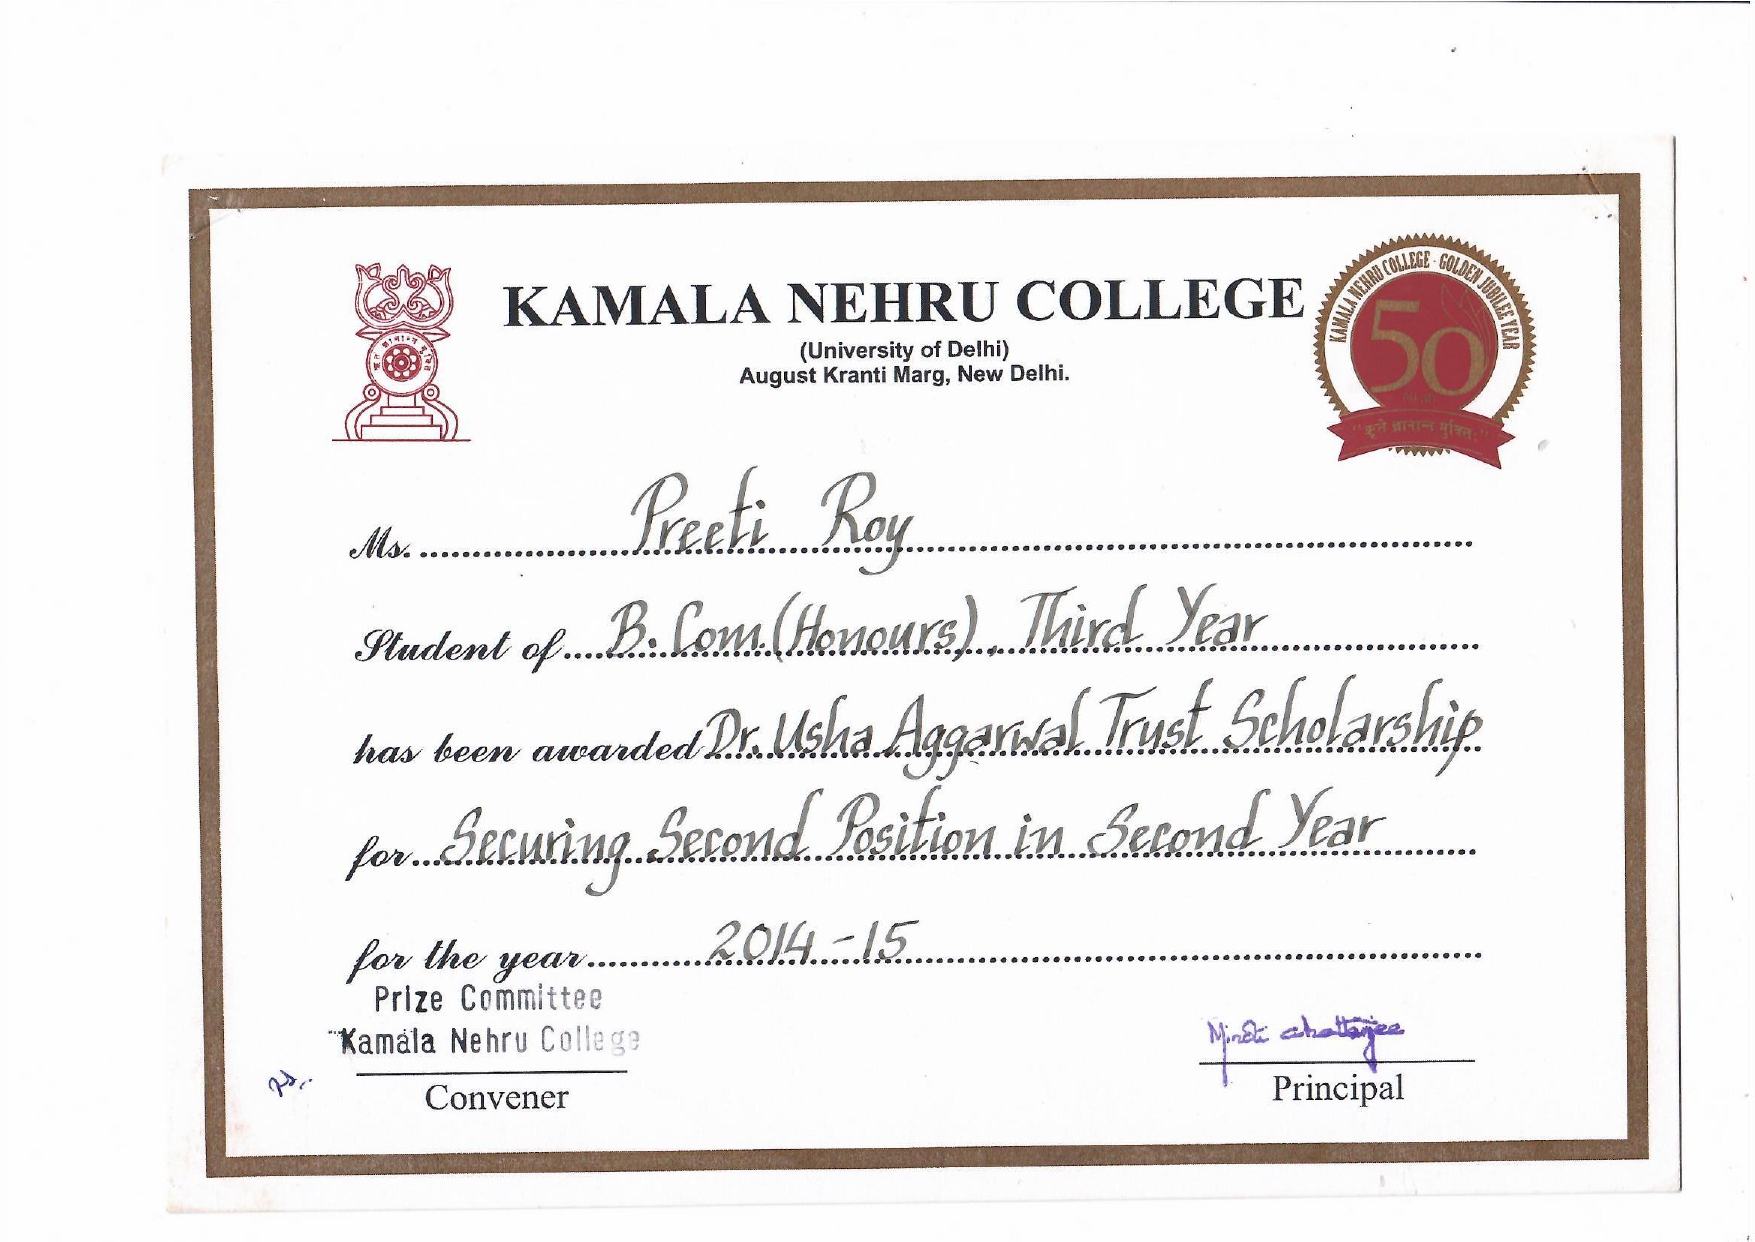 KAMALA NEHRU COLLEGE
(University of Delhi)
August Kranti Marg, New Delhi.
KAMALA NEHRU COLLEGE · GOLDEN JUBILEE YEAR
50
Ms. Preeti Roy
Student of B. Com. (Honours), Third Year
has been awarded Dr. Usha Aggarwal Trust Scholarship
for Securing Second Position in Second Year
for the year 2014-15
Prize Committee
Kamala Nehru College
Convener
Chatterjee
Principal